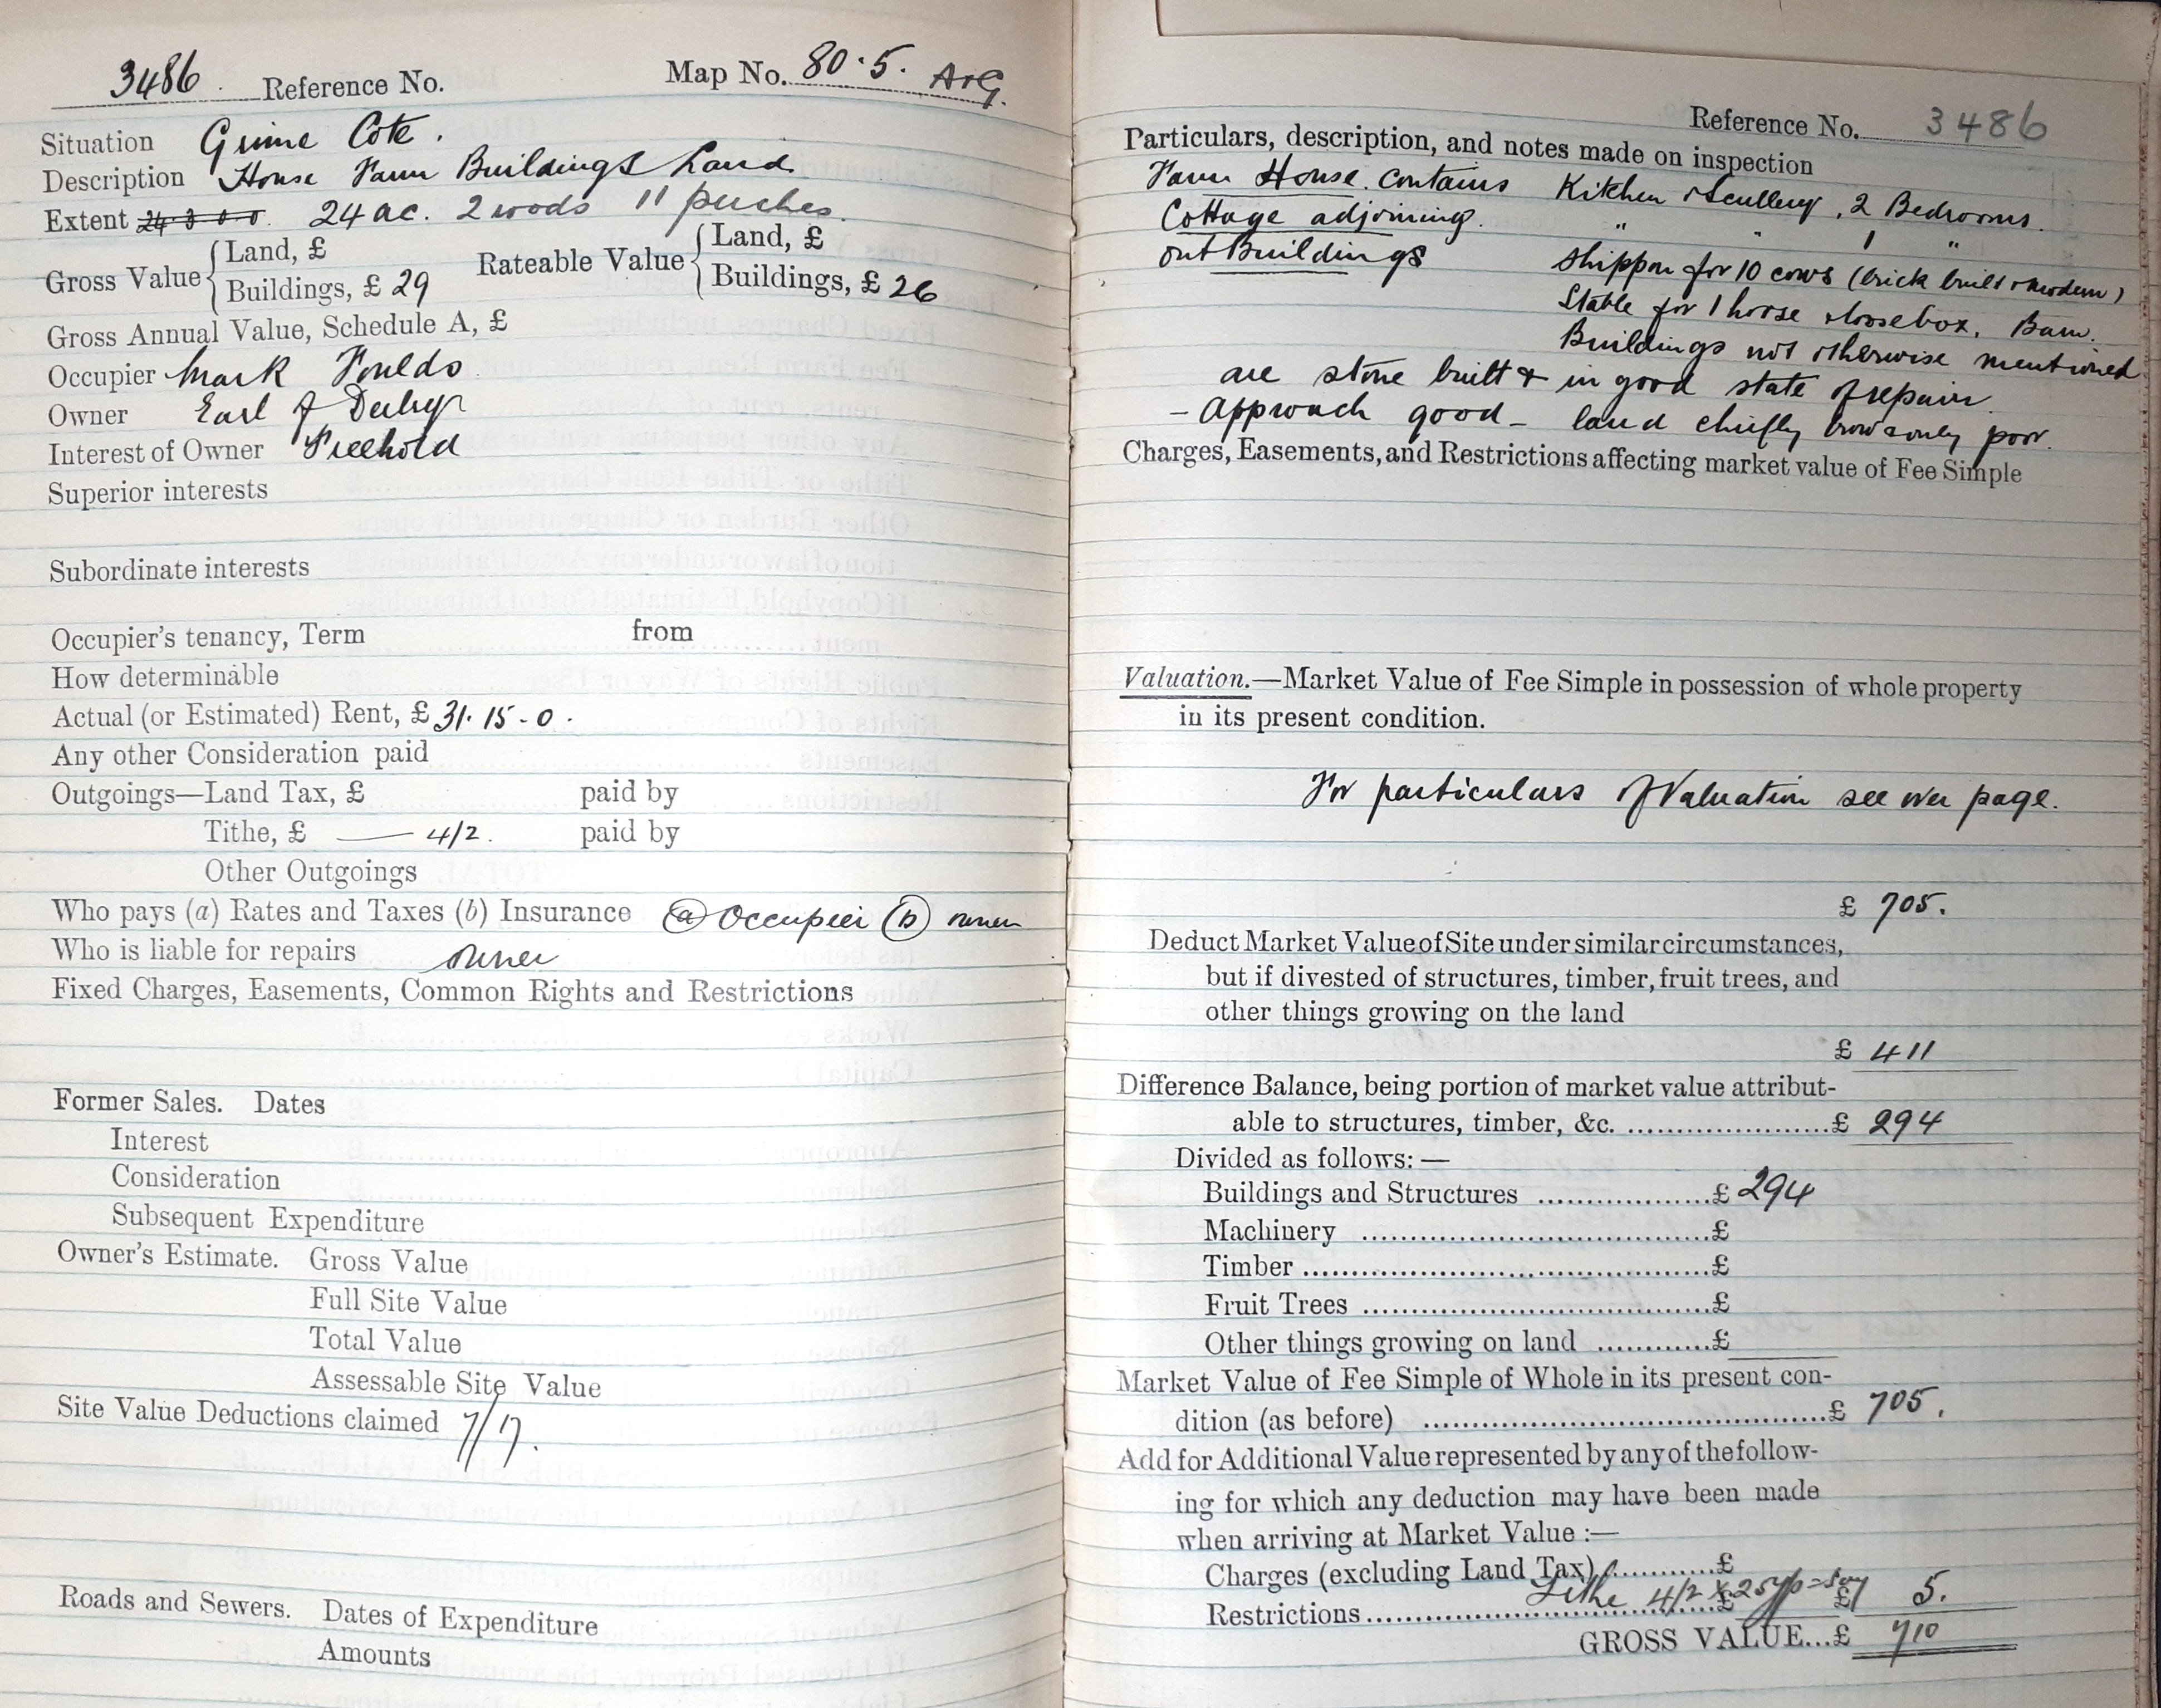 3486. Reference No. Map No. 80.5. A+G.
Situation Grime Cote.
Description House Farm Buildings Land.
Extent 24-3-0-0. 24 ac. 2 roods 11 perches.
Gross Value { Land, £ Rateable Value { Land, £
Buildings, £ 29 Buildings, £ 26
Gross Annual Value, Schedule A, £
Occupier Mark Foulds
Owner Earl of Derby
Interest of Owner Freehold
Superior interests
Subordinate interests
Occupier's tenancy, Term from
How determinable
Actual (or Estimated) Rent, £ 31.15-0.
Any other Consideration paid
Outgoings—Land Tax, £ paid by
Tithe, £ — 4/2. paid by
Other Outgoings
Who pays (a) Rates and Taxes (b) Insurance (a) Occupier (b) owner
Who is liable for repairs owner
Fixed Charges, Easements, Common Rights and Restrictions
Former Sales. Dates
Interest
Consideration
Subsequent Expenditure
Owner's Estimate. Gross Value
Full Site Value
Total Value
Assessable Site Value
Site Value Deductions claimed 7/17.
Roads and Sewers. Dates of Expenditure
Amounts
Reference No. 3486
Particulars, description, and notes made on inspection
Farm House. contains Kitchen & Scullery, 2 Bedrooms.
Cottage adjoining. " " 1 "
out Buildings Shippon for 10 cows (brick built & modern)
Stable for 1 horse & loosebox. Barn.
Buildings not otherwise mentioned
are stone built & in good state of repair.
- Approach good - land chiefly brow & only poor.
Charges, Easements, and Restrictions affecting market value of Fee Simple
Valuation.—Market Value of Fee Simple in possession of whole property
in its present condition.
For particulars of Valuation see over page.
£ 705.
Deduct Market Value of Site under similar circumstances,
but if divested of structures, timber, fruit trees, and
other things growing on the land
£ 411
Difference Balance, being portion of market value attribut-
able to structures, timber, &c. ....................£ 294
Divided as follows: —
Buildings and Structures .................£ 294
Machinery ...................................£
Timber .........................................£
Fruit Trees ...................................£
Other things growing on land ............£
Market Value of Fee Simple of Whole in its present con-
dition (as before) ........................................£ 705.
Add for Additional Value represented by any of the follow-
ing for which any deduction may have been made
when arriving at Market Value :—
Charges (excluding Land Tax) ............£
Tithe 4/2 x 25 yp = say
Restrictions ...................................£ £ 5.
GROSS VALUE...£ 710